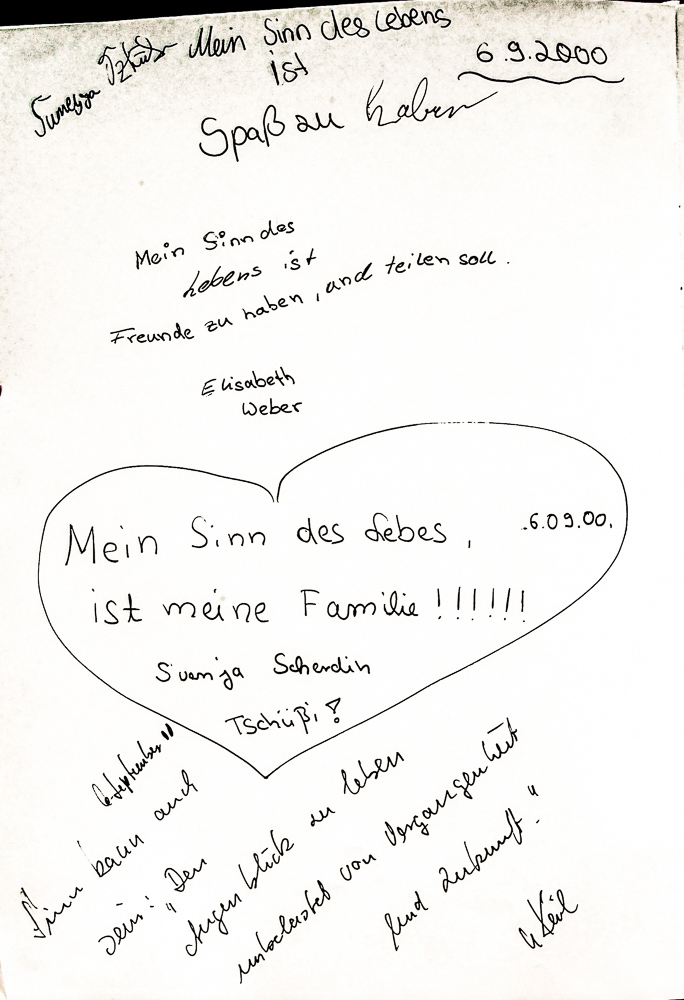 Sumeyya
Mein Sinn des Lebens
ist
6.9.2000
Spaß zu haben
Mein Sinn des
Lebens ist
Freunde zu haben, und teilen soll.
Elisabeth
Weber
Mein Sinn des Lebes,
.6.09.00.
ist meine Familie !!!!!!
Svenja Scherdin
Tschüßi!
6. September
Sinn kann auch
sein: "Den
Augenblick zu leben
unbelastet von Vergangenheit
und Zukunft."
Keil